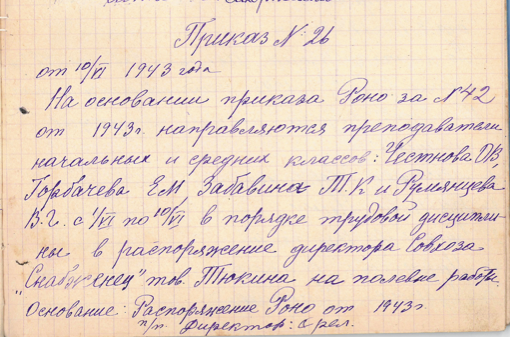 Приказ № 26
от 10/VI 1943 года
На основании приказа Роно за № 42
от 1943г. направляются преподаватели
начальных и средних классов: Честнова О.В,
Горбачева Е.М Забавина Т.К и Румянцева
В.Г. с 1/VI по 10/VI в порядке трудовой дисципли-
ны в распоряжение директора Совхоза
„Снабженец" тов. Тюкина на полевые работы.
Основание: Распоряжение Роно от 1943г
п/п. Директор: